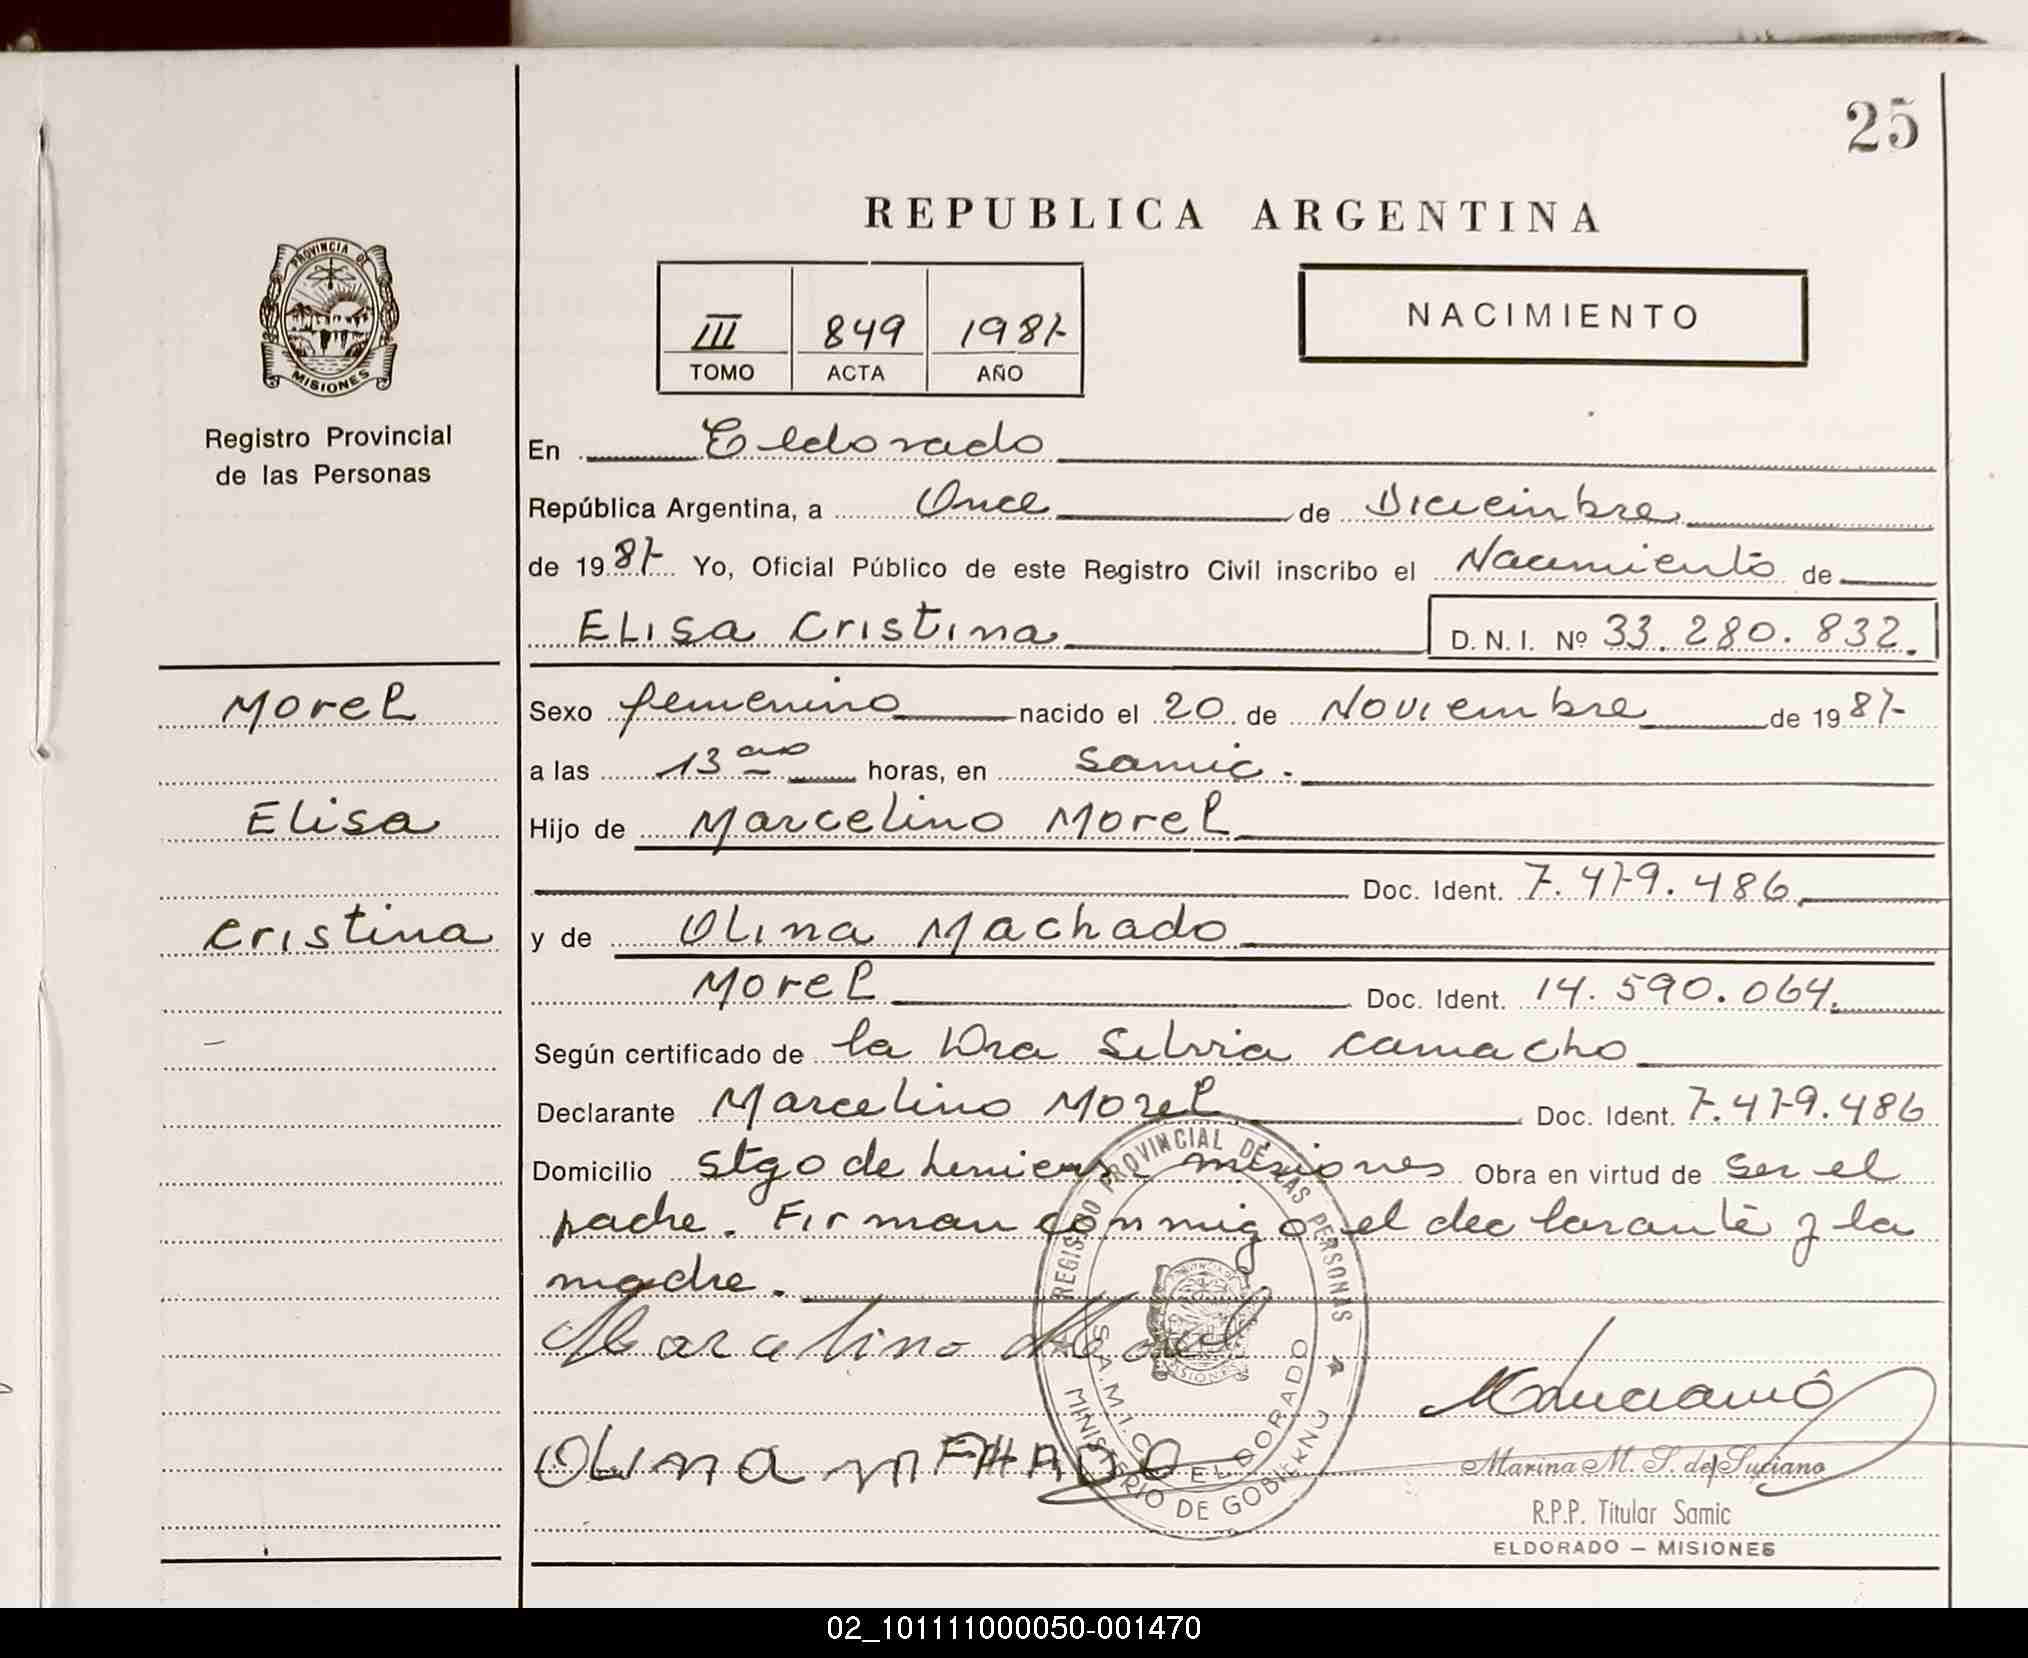 25
REPUBLICA ARGENTINA
III 849 1987
TOMO ACTA AÑO
NACIMIENTO
PROVINCIA DE
MISIONES
Registro Provincial
de las Personas
En Eldorado
República Argentina, a Once de Diciembre
de 1987 Yo, Oficial Público de este Registro Civil inscribo el Nacimiento de
ELisa Cristina D. N. I. Nº 33.280.832.
Morel
Elisa
Cristina
Sexo femenino nacido el 20 de Noviembre de 1987
a las 13 horas, en Samic.
Hijo de Marcelino Morel
Doc. Ident. 7.479.486
y de Olina Machado
Morel Doc. Ident. 14.590.064.
Según certificado de la Dra Silvia Camacho
Declarante Marcelino Morel Doc. Ident. 7.479.486
Domicilio Stgo de Liniers misiones Obra en virtud de ser el
padre. Firman conmigo el declarante y la
madre.
Marcelino Morel
OLina
REGISTRO PROVINCIAL DE LAS PERSONAS
S.A.M.I.C. ELDORADO
MINISTERIO DE GOBIERNO
Marina M. S. de Luciano
R.P.P. Titular Samic
ELDORADO — MISIONES
02_101111000050-001470